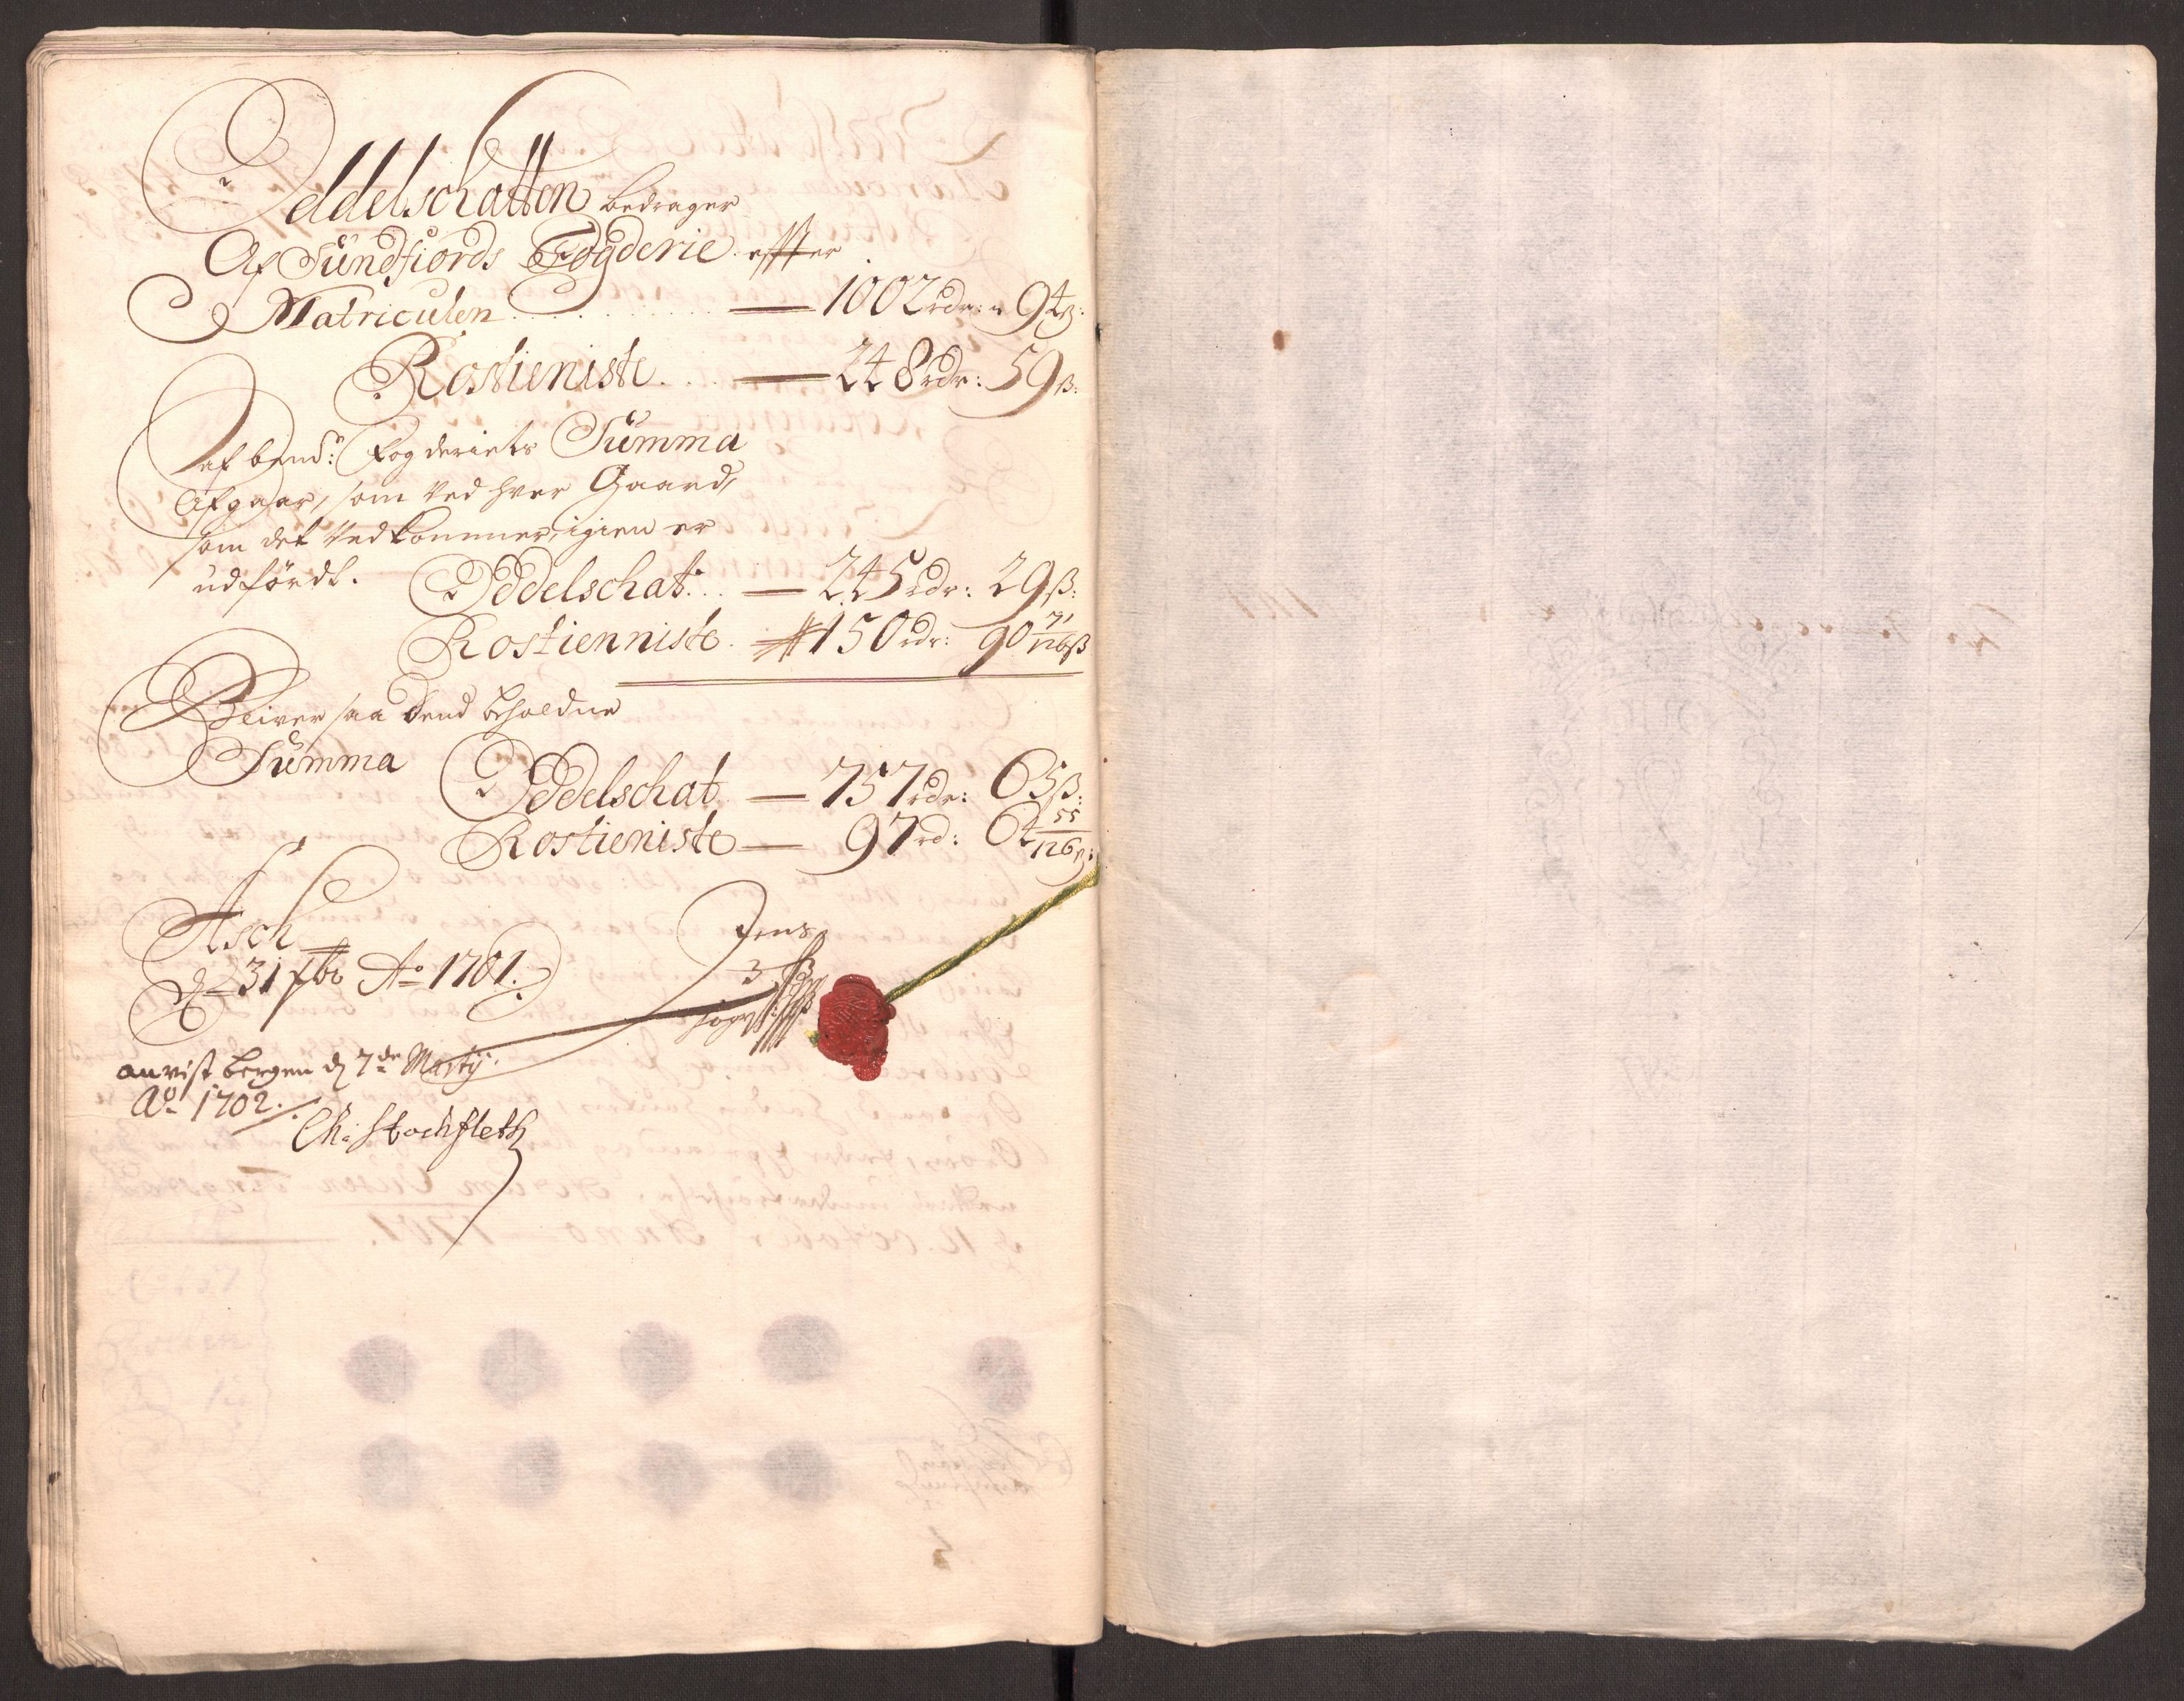 Oddelschatten bedrager
Af Sündfiords Fogderie effter
Matriculen . . . . . . . . . . — 1002 rdr: 94 ß:
Rostieniste . . . . — 248 rdr: 59 ß:
af bem.te: Fogderiets Summa
Afgaar, som Ved hver Gaard,
som det Vedkommer, igien er
udførdt. Oddelschat . . . — 245 rdr: 29 ß:
Rostienniste . 150 rdr: 90 71/126 ß
Bliver saa Dend beholdne
Summa Oddelschat — 757 rdr: 65 ß:
Rostieniste — 97 rd: 64 55/126 ß:
Asch
d 31 xbr Ao 1701. Jens
anvist bergen d 7de Martij.
Ao 1702. Chr: Stochfleth